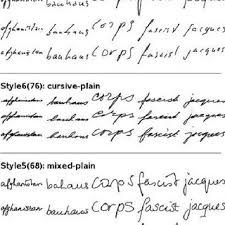 afghanistan bauhaus corps fascist jacques
afghanistan bauhaus corps fascist jacques
afghanistan bauhaus corps fascist jacques
Style6(76): cursive-plain
afghanistan bauhaus corps fascist jacques
afghanistan bauhaus corps fascist jacques
afghanistan bauhaus corps fascist jacques
Style5(68): mixed-plain
afghanistan bahaus corps fascist jacques
afghanistan bauhaus corps fascist jacques